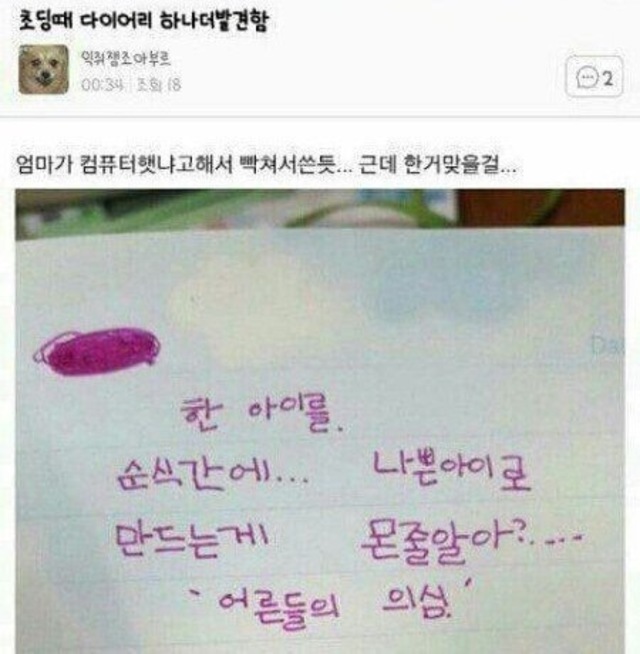 초딩때 다이어리 하나더발견함
익쥐잼조아부르
00:34 조회 18
2
엄마가 컴퓨터햇냐고해서 빡쳐서쓴듯... 근데 한거맞을걸...
한 아이를.
순식간에... 나쁜아이로
만드는게 몬줄알아?....
`어른들의 의심.'